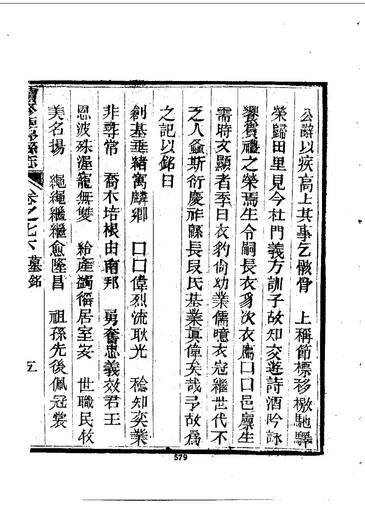 公辭以疾高上其事乞骸骨　上稱節標移檄馳驛
榮歸田里見今杜門義方訓子故知交遊詩酒吟詠
饗賓禮之榮焉生令嗣長衣豸次衣廌口口邑廪生
需時文顯者季曰衣豹尙幼業儒噫衣冠繼世代不
乏人螽斯衍慶祚緜長段氏基業眞偉矣哉予故爲
之記以銘曰
創基垂緒寓麟鄉　口口偉烈流耿光　稔知奕業
非尋常　喬木培根由南邦　勇奮忠義效君王
恩波殊渥寵無雙　給產蠲徭居室安　世職民牧
美名揚　繩繩繼繼愈隆昌　祖孫先後佩冠裳
卷之七下墓銘
五
579